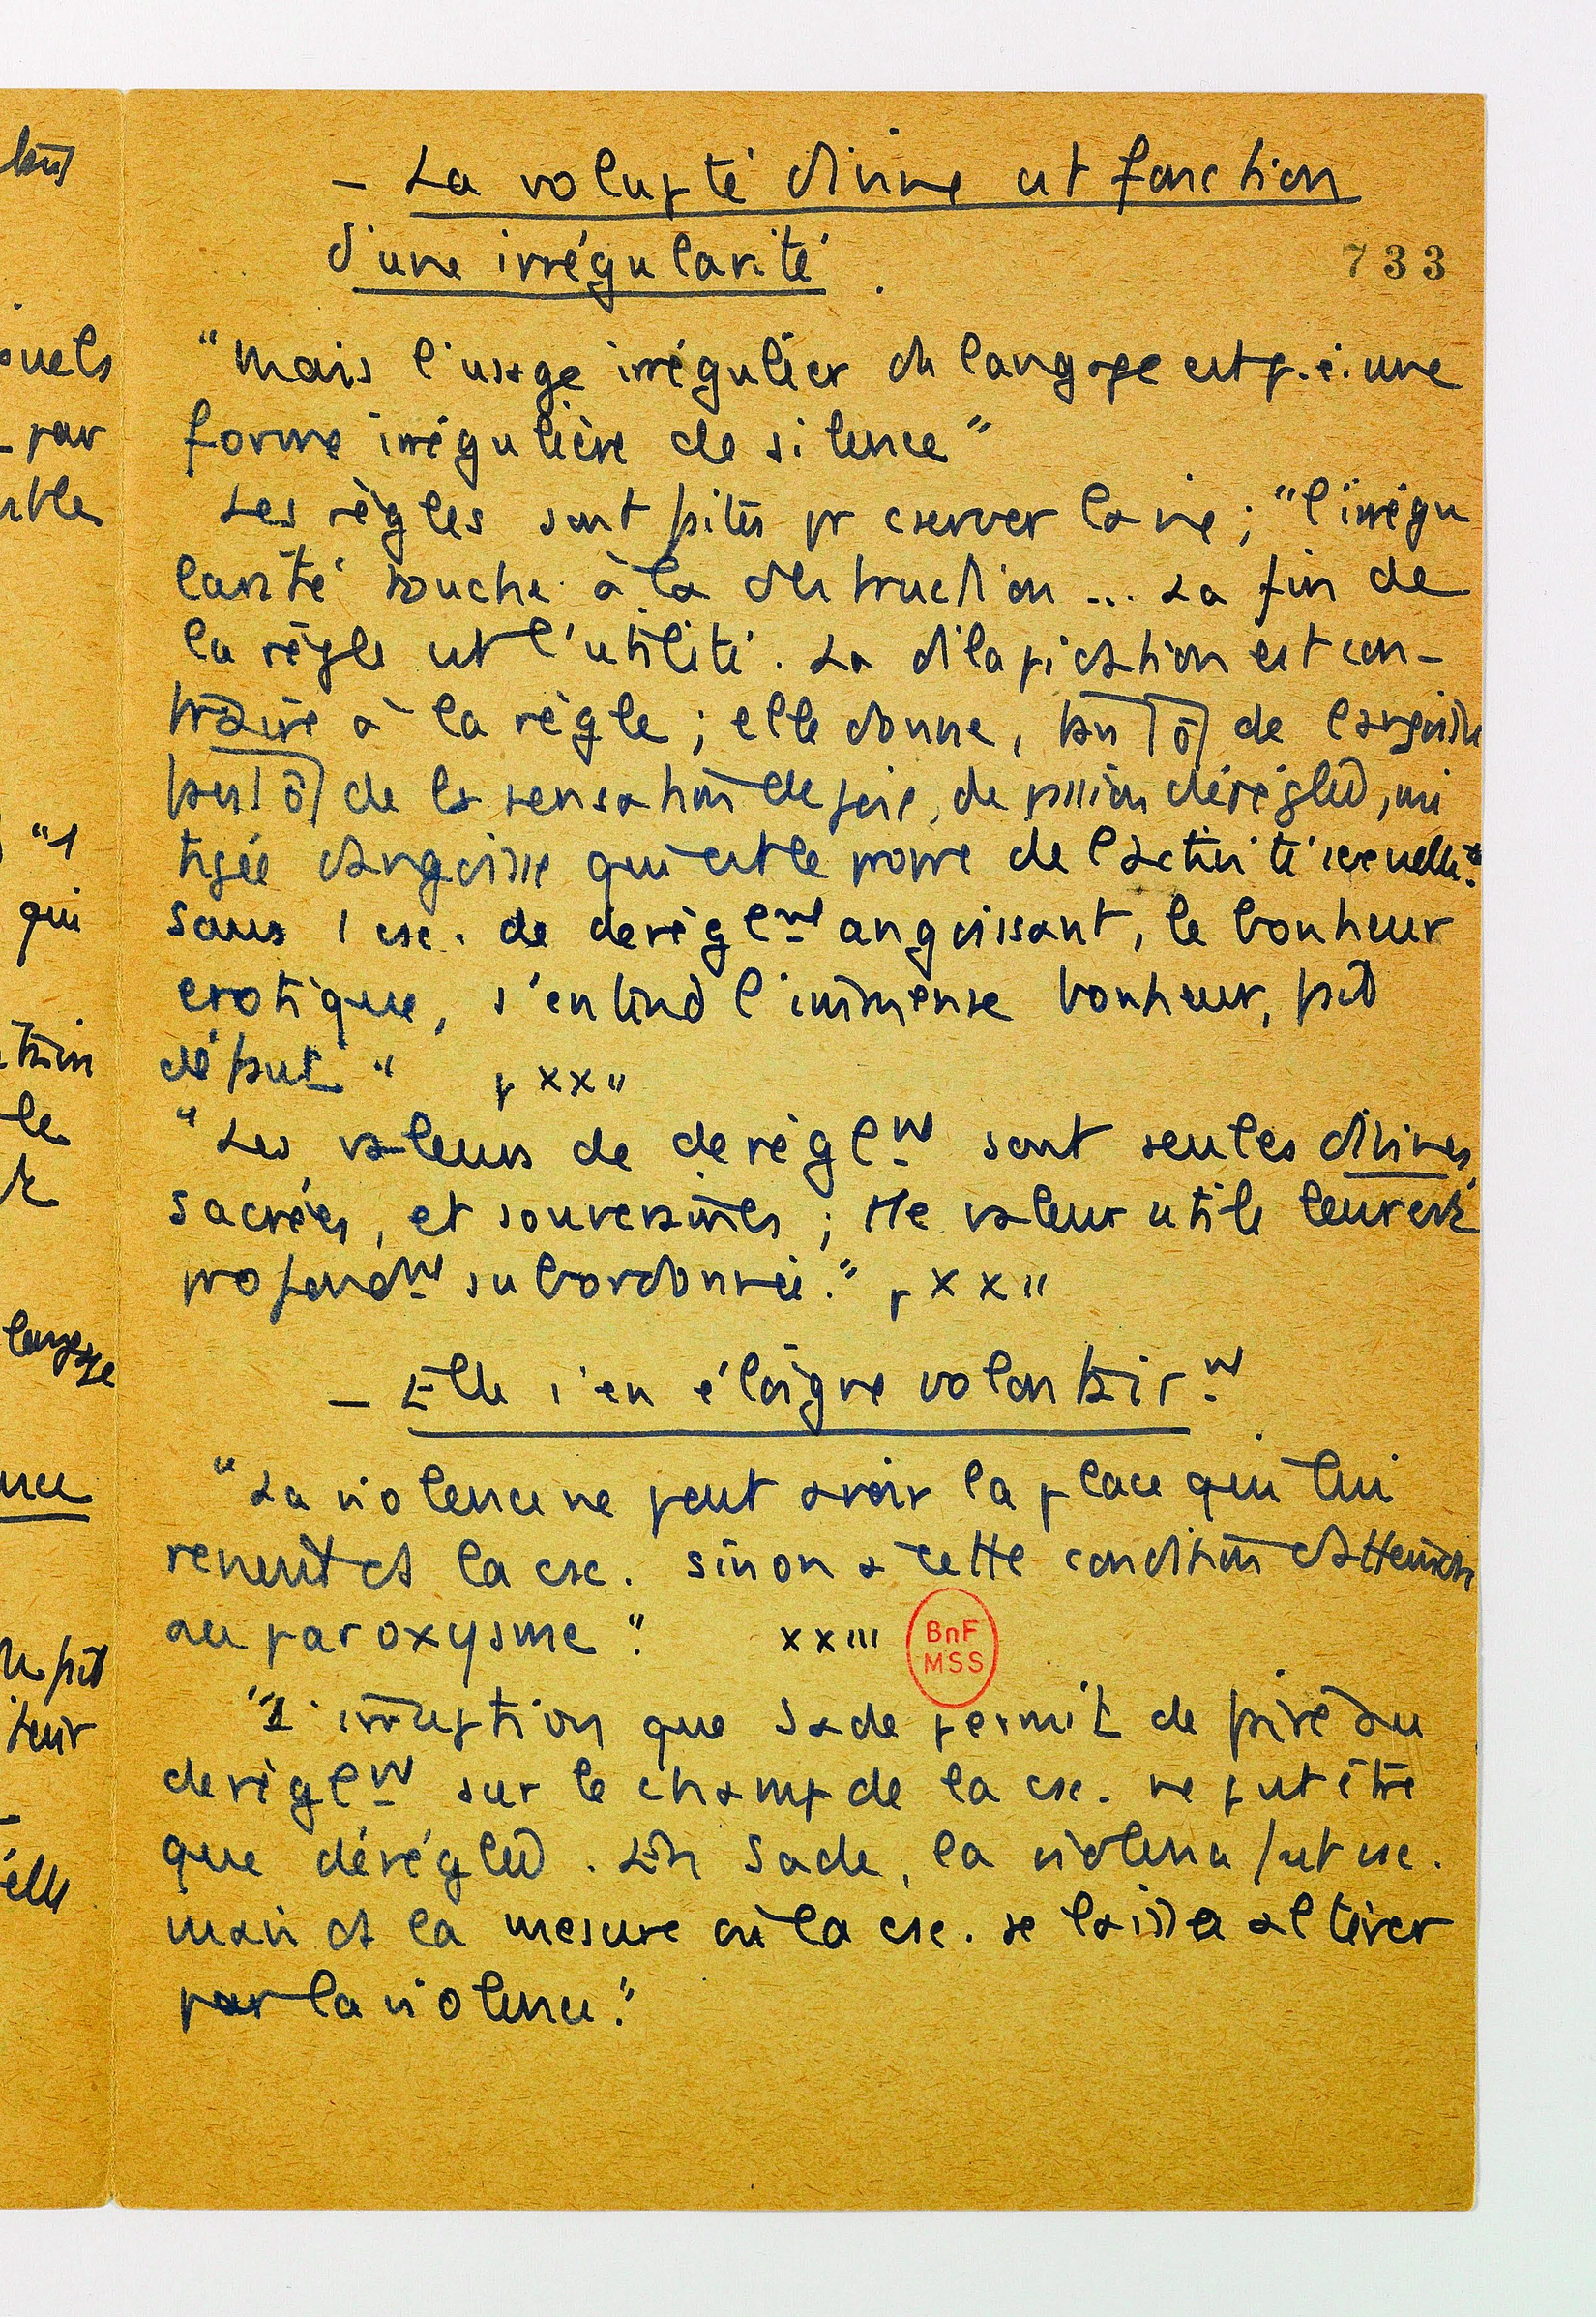 - La volupté divine est fonction
d'une irrégularité.
733
"Mais l'usage irrégulier du langage est p.ê. une
forme irrégulière de silence"
Les règles sont faites pr cserver la vie ; "l'irrégu
larité touche à la destruction ... La fin de
la règle est l'utilité. La dilapidation est con-
traire à la règle ; elle donne, tantôt de l'angoisse
tantôt de la sensation de joie, de passion déréglée, mi
tigée d'angoisse qui est le propre de l'activité sexuelle."
Sans 1 csc. de dérèglmt angoissant, le bonheur
érotique, s'entend l'immense bonheur, fait
défaut" p XXII
"Les valeurs de dérèglmt sont seules divines,
sacrées, et souveraines ; tte valeur utile leur est
profondmt subordonnée." p XXII
- Elle s'en éloigne volontairmt
"La violence ne peut avoir la place qui lui
revient ds la csc. sinon à cette condition d'atteindre
au paroxysme." XXIII
BnF
MSS
"L'irruption que Sade permit de faire au
dérèglmt sur le champ de la csc. ne put être
que déréglée. En Sade, la violence fut csc.
mais ds la mesure où la csc. se laissa altérer
par la violence."
bts
suels
- par
"1
qui
le
langage
nce
fait
elle